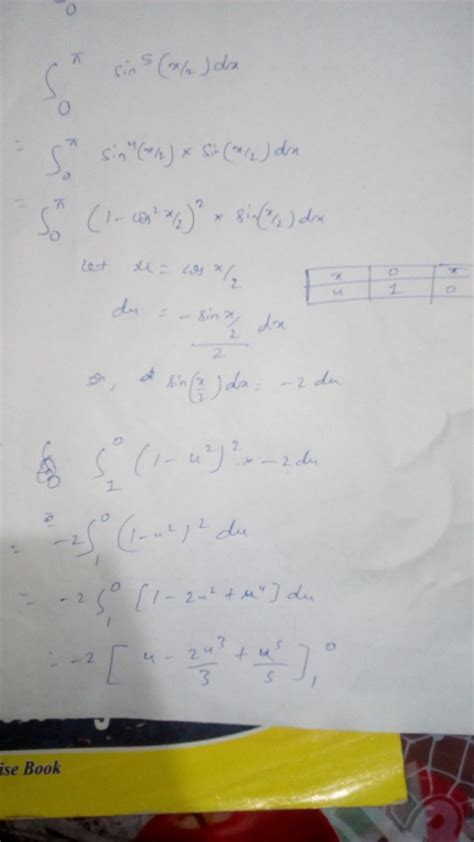 0
∫₀^π sin⁵(x/2) dx
= ∫₀^π sin⁴(x/2) × sin(x/2) dx
= ∫₀^π (1 - cos² x/2)² × sin(x/2) dx
let u = cos x/2
x | 0 | π
u | 1 | 0
du = (-sin x/2)/2 dx
or, sin(x/2) dx = -2 du
∫₁⁰ (1 - u²)² × -2 du
= -2 ∫₁⁰ (1 - u²)² du
= -2 ∫₁⁰ [1 - 2u² + u⁴] du
= -2 [u - 2u³/3 + u⁵/5]₁⁰
ise Book